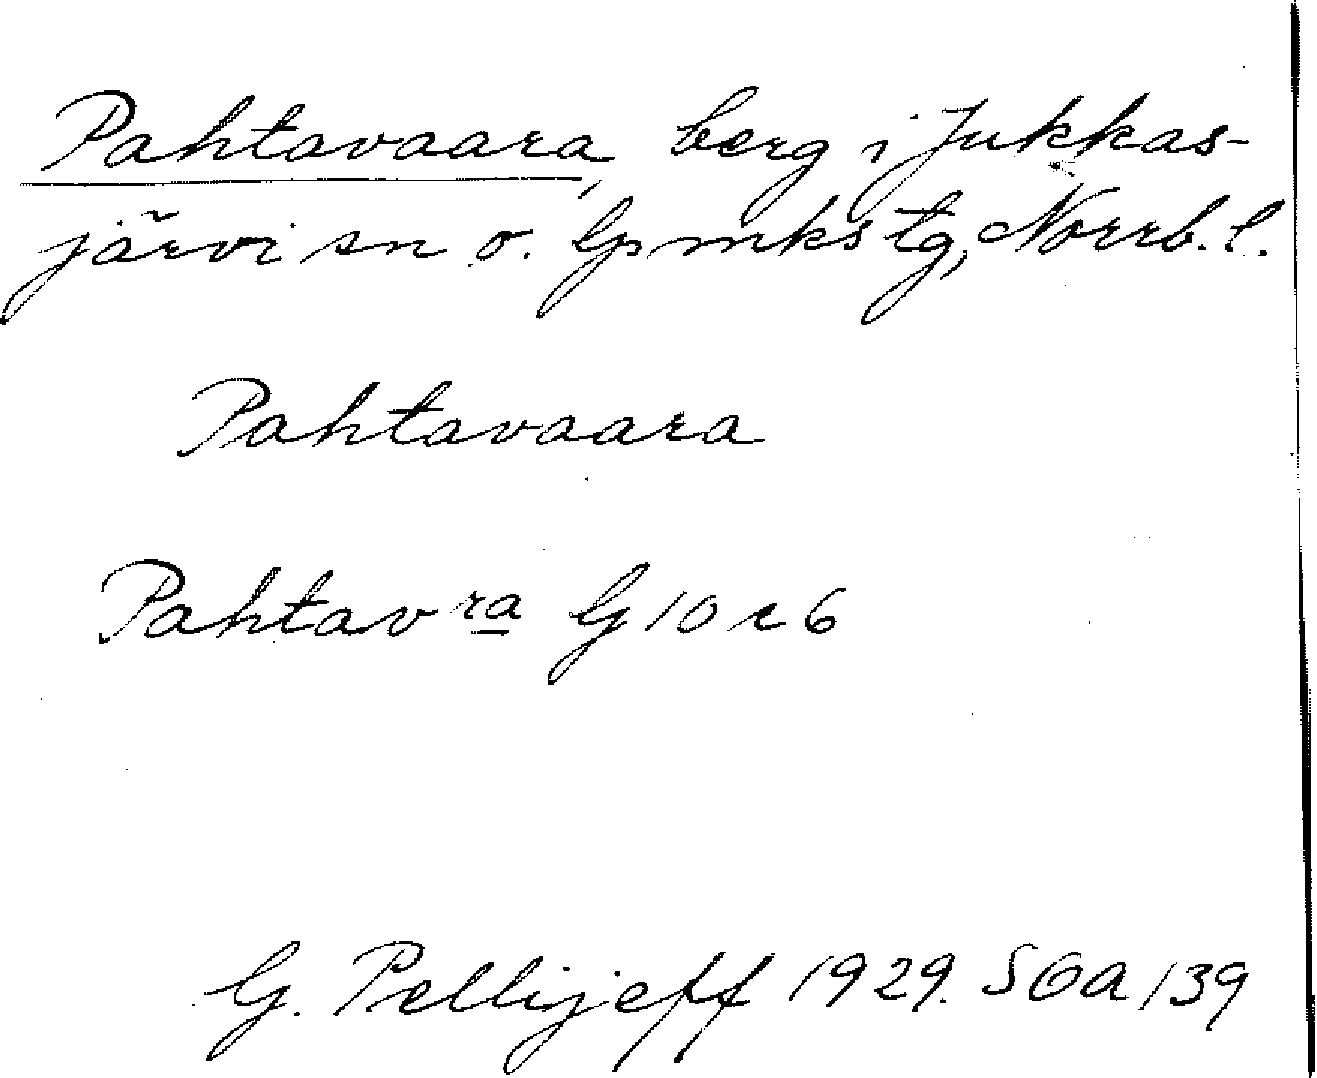 Pahtavaara, berg i Jukkas-
järvi sn o. Gp mkstg, Norrb. l.
Pahtavaara
Pahtav ra G 10 c 6
G. Pellijeff 1929. SOA 139